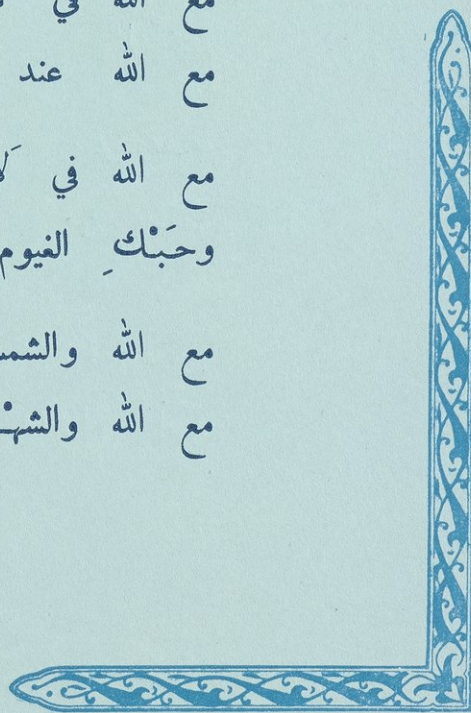 مع الله في
مع الله عند
مع الله في
وحَبْكِ الغيوم
مع الله والشمس
مع الله والشهْب